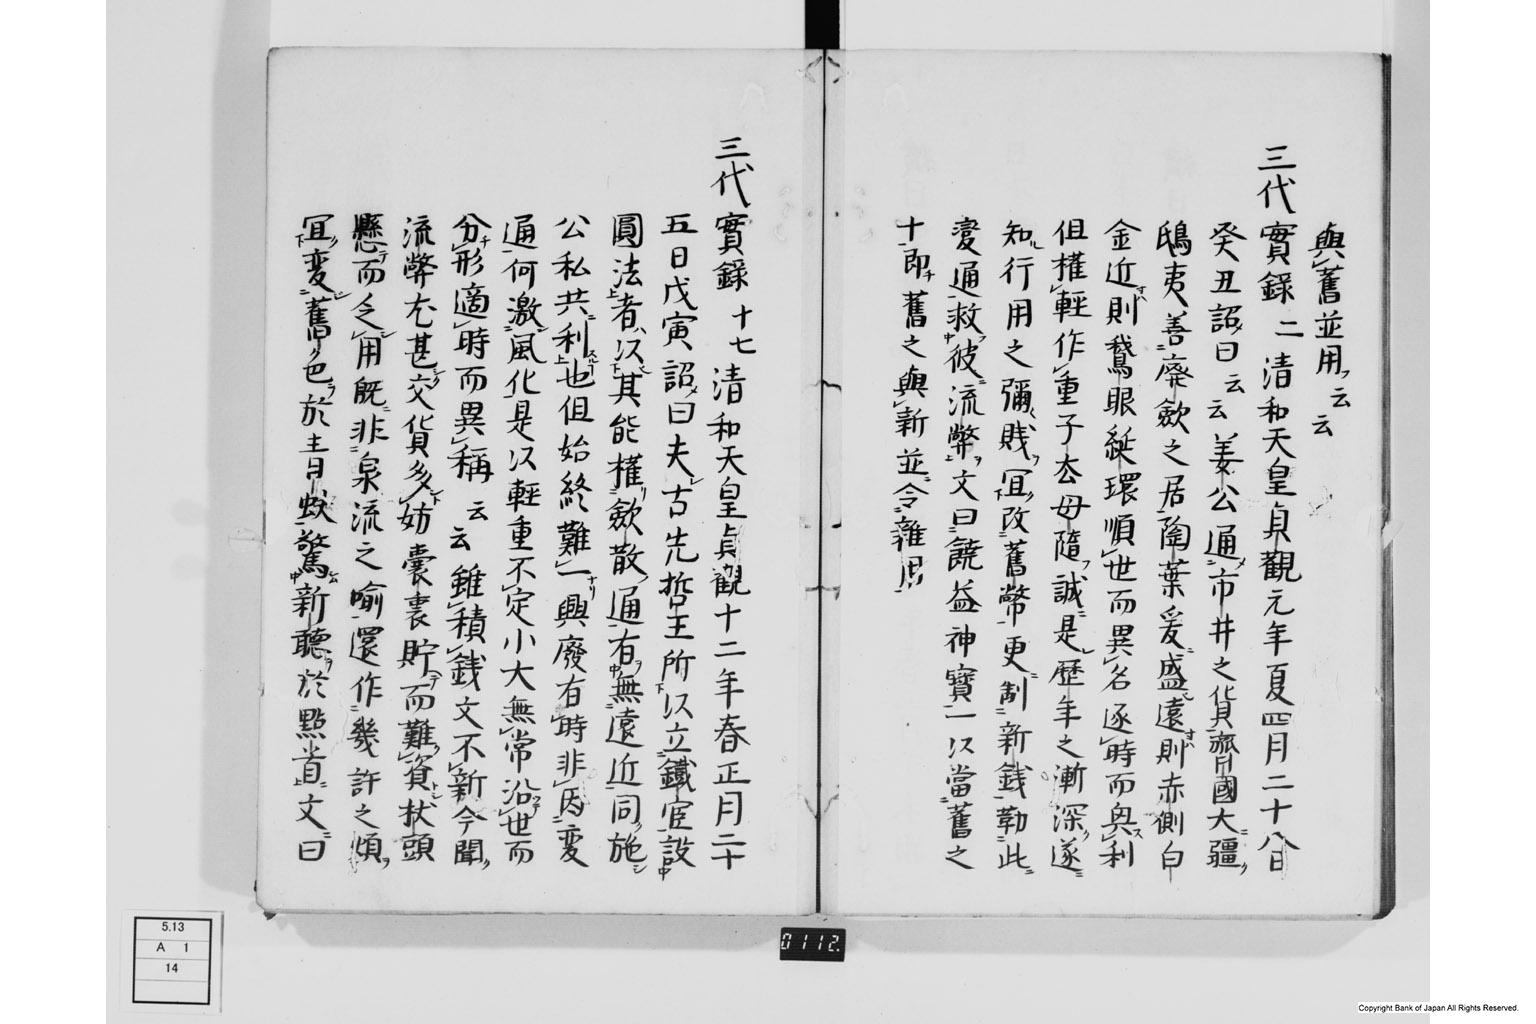 與舊並用云云
三代實録二 清和天皇貞觀元年夏四月二十八日
癸丑詔曰云云姜公通市井之貨齊國大疆
鴟夷善廢歛之居陶葉爰盛遠則赤側白
金近則鵞眼綖環順世而異名逐時而與利
但權輕作重子太母隨誠是歴年之漸深遂
知行用之彌賎冝改舊幣更制新銭勒此
変通救彼流幣文曰饒益神寶一以當舊之
十即舊之與新並令雜用
三代實録十七 清和天皇貞觀十二年春正月二十
五日戊寅詔曰夫古先哲王所以立鐵官設
圓法者以其能權歛散通有無遠近同施
公私共利也但始終難一興廢有時非因変
通何激風化是以輕重不定小大無常沿世而
分形適時而異稱云云雖積銭文不新今聞
流弊尤甚交貨多妨嚢裏貯而難資杖頭
懸而乏用既非泉流之喩還作幾許之煩
冝変舊色於青蚨驚新聽於黔首文曰
5.13
A 1
14
0112.
Copyright Bank of Japan All Rights Reserved.